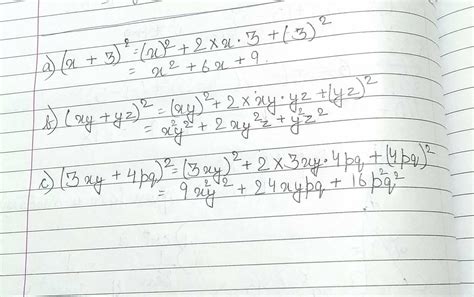 a) (x + 3)² = (x)² + 2 × x · 3 + (3)²
= x² + 6x + 9.
b) (xy + yz)² = (xy)² + 2 × xy · yz + (yz)²
= x²y² + 2xy²z + y²z²
c) (3xy + 4pq)² = (3xy)² + 2 × 3xy · 4pq + (4pq)²
= 9x²y² + 24xypq + 16p²q²